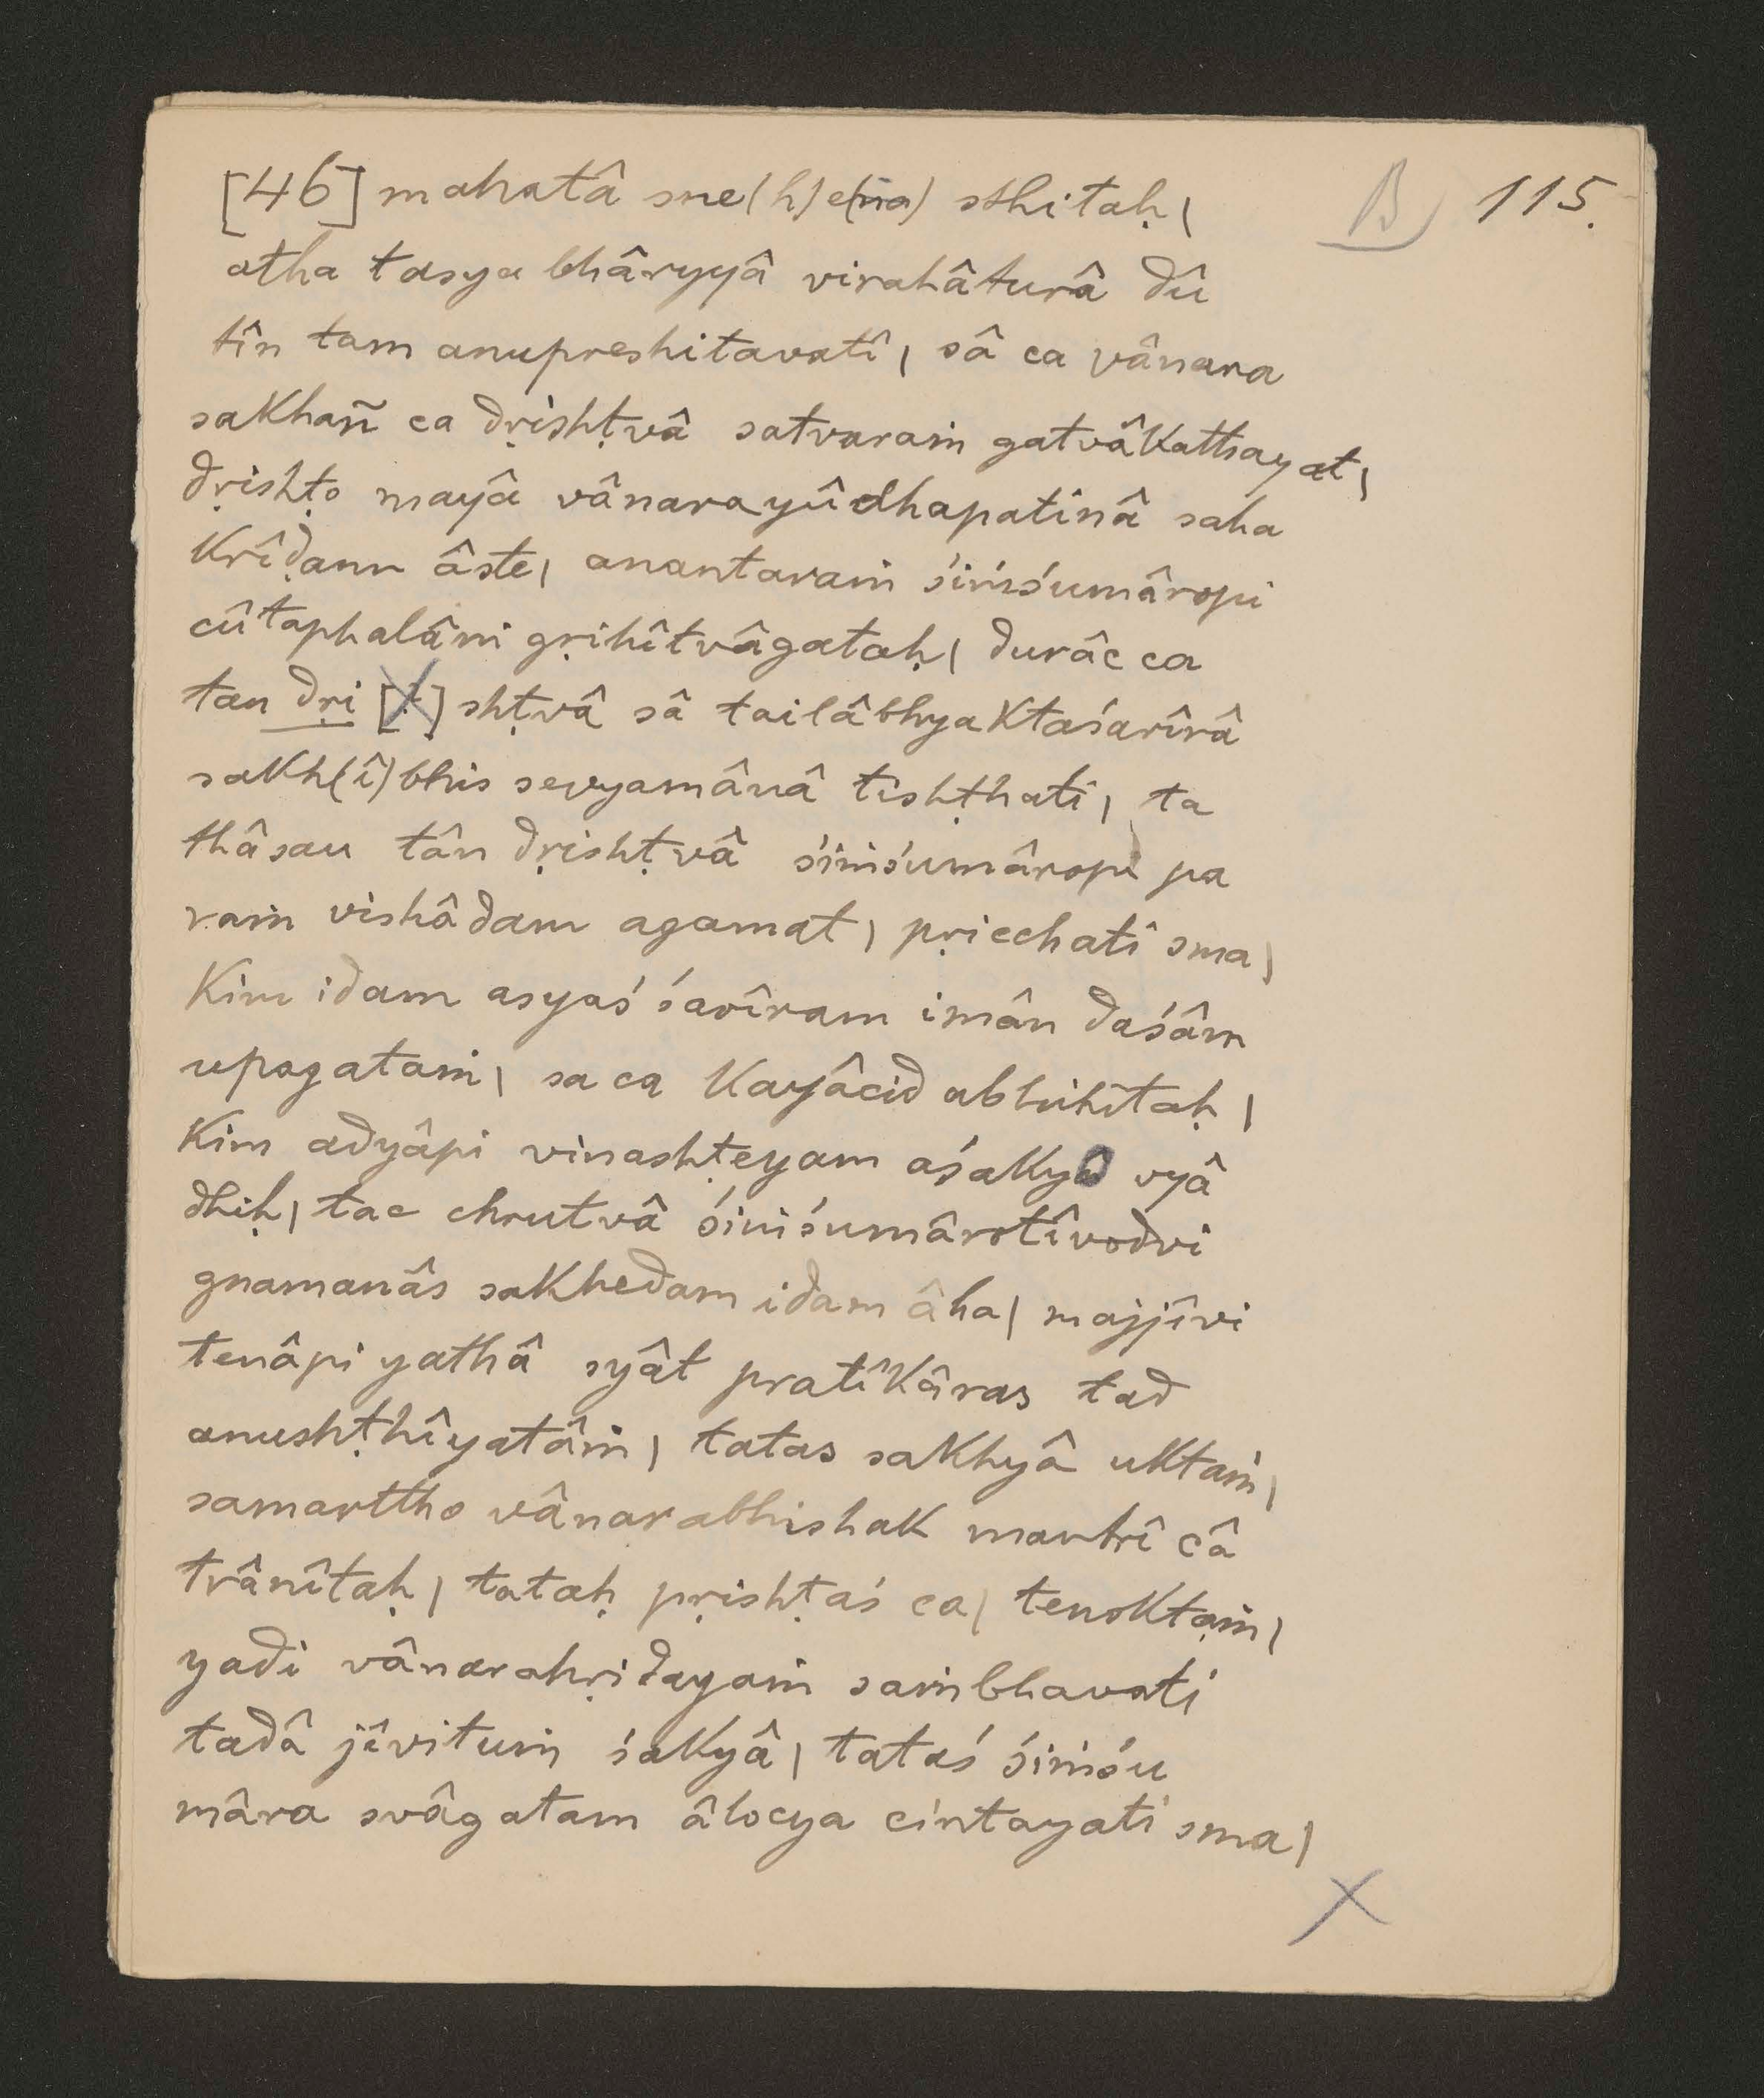 [46] mahatâ sne(h)e(na) sthitaḥ | B 115.
atha tasya bhâryyâ virahâturâ dû
tîn tam anupreshitavatî | sâ ca vânara
sakhañ ca dṛishṭvâ satvaraṁ gatvâkathayat |
dṛishṭo mayâ vânarayûdhapatinâ saha
krîḍann âste | anantaraṁ śiṁśumâropi
cûtaphalâni gṛihîtvâgataḥ | durâc ca
tan dṛi [ṭ] shṭvâ sâ tailâbhyaktaśarîrâ
sakh(î)bhis sevyamânâ tishṭhati | ta
thâsau tân dṛishṭvâ śiṁśumâropi pa
raṁ vishâdam agamat | pṛicchati sma |
kim idam asyaś śarîram imân daśâm
upagataṁ | sa ca kayâcid abhihitaḥ |
kim adyâpi vinashṭeyam aśakyo vyâ
dhiḥ | tac chrutvâ śiṁśumârotîvodvi
gnamanâs sakhedam idam âha | majjîvi
tenâpi yathâ syât pratîkâras tad
anushṭhîyatâṁ | tatas sakhyâ uktaṁ |
samarttho vânarabhishak mantrî câ
trânîtaḥ | tataḥ pṛishṭaś ca | tenoktaṁ |
yadi vânarahṛidayaṁ saṁbhavati
tadâ jîvituṁ śakyâ | tataś śiṁśu
mâra svâgatam âlocya cintayati sma |